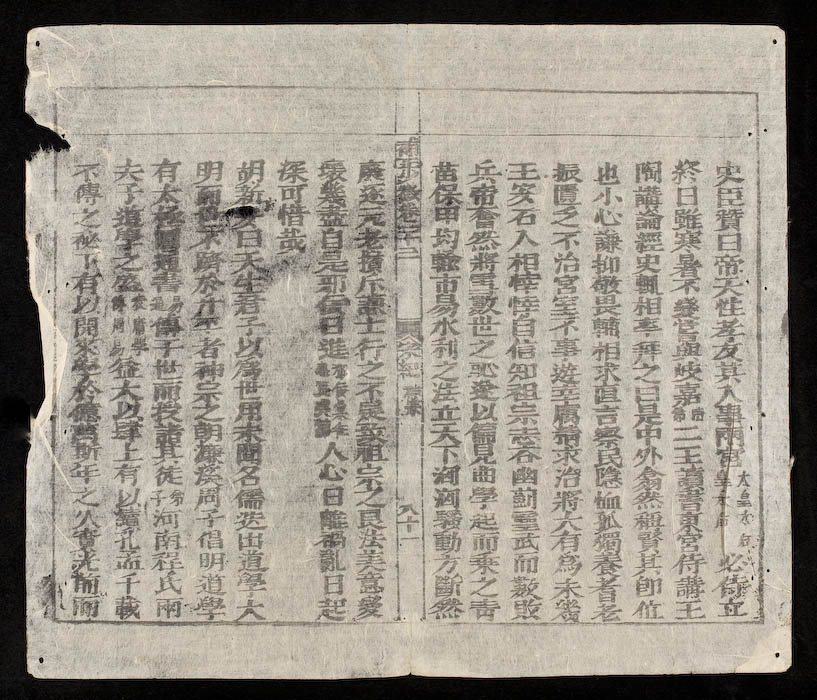 史臣贊曰帝天性孝友其入事兩宮太皇太后皇太后必侍立
終日雖寒暑不變嘗與岐嘉二王讀書東宮侍講王
陶講論經史輒相率拜之由是中外翕然稱賢其即位
也小心謙抑敬畏輔相求直言察民隱恤孤獨養耆老
振匱乏不治宮室不事遊幸厲精求治將大有為未幾
王安石入相悻悻自信知祖宗志吞幽薊靈武而數敗
兵帝奮然將雪數世之恥遂以偏見曲學起而乘之青
苗保甲均輸市易水利之法立天下洶洶騷動方斷然
廢逐元老擯斥諫士行之不疑致祖宗之良法美意變
壞幾盡自是邪佞日進人心日離禍亂日起
深可惜哉
胡新安曰天生君子以為世用未聞名儒迭出道學大
明而世不躋於升平者神宗之朝濂溪周子倡明道學
有太極圖通書易傳于世而授諸其徒河南程氏兩
夫子道學之盛益大以肆上有以續孔孟千載
不傳之秘下有以開來學於億萬斯年之久會光而雨